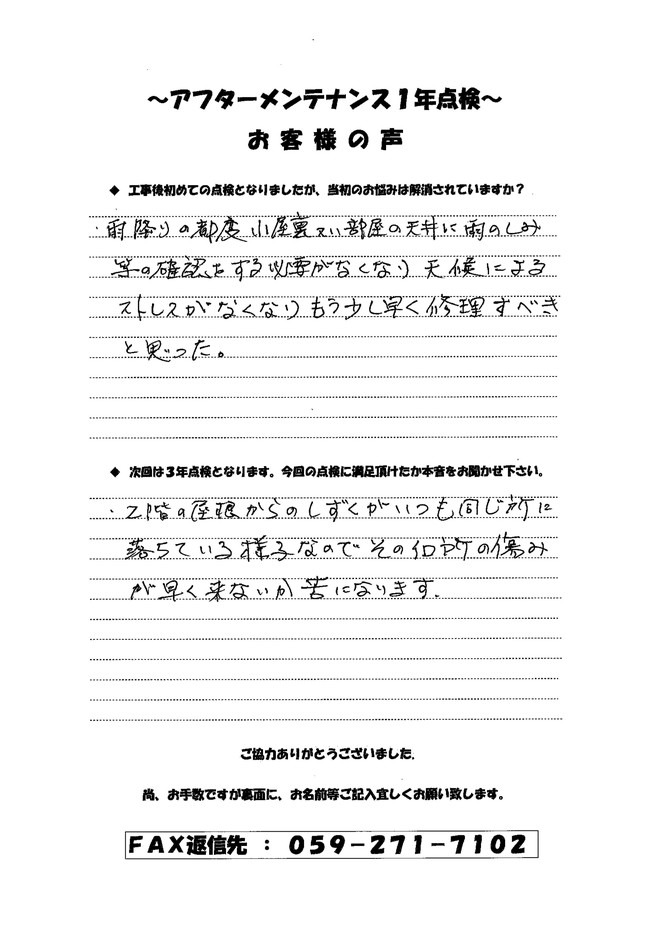 ～アフターメンテナンス１年点検～
お客様の声
◆ 工事後初めての点検となりましたが、当初のお悩みは解消されていますか？
・雨降りの都度小屋裏又い部屋の天井に雨のしみ
等の確認をする必要がなくなり天候による
ストレスがなくなりもう少し早く修理すべき
と思った。
◆ 次回は３年点検となります。今回の点検に満足頂けたか本音をお聞かせ下さい。
・２階の屋根からのしずくがいつも同じ所に
落ちている様子なのでその個所の傷み
が早く来ないか苦になります.
ご協力ありがとうございました.
尚、お手数ですが裏面に、お名前等ご記入宜しくお願い致します。
ＦＡＸ返信先 ： ０５９－２７１－７１０２